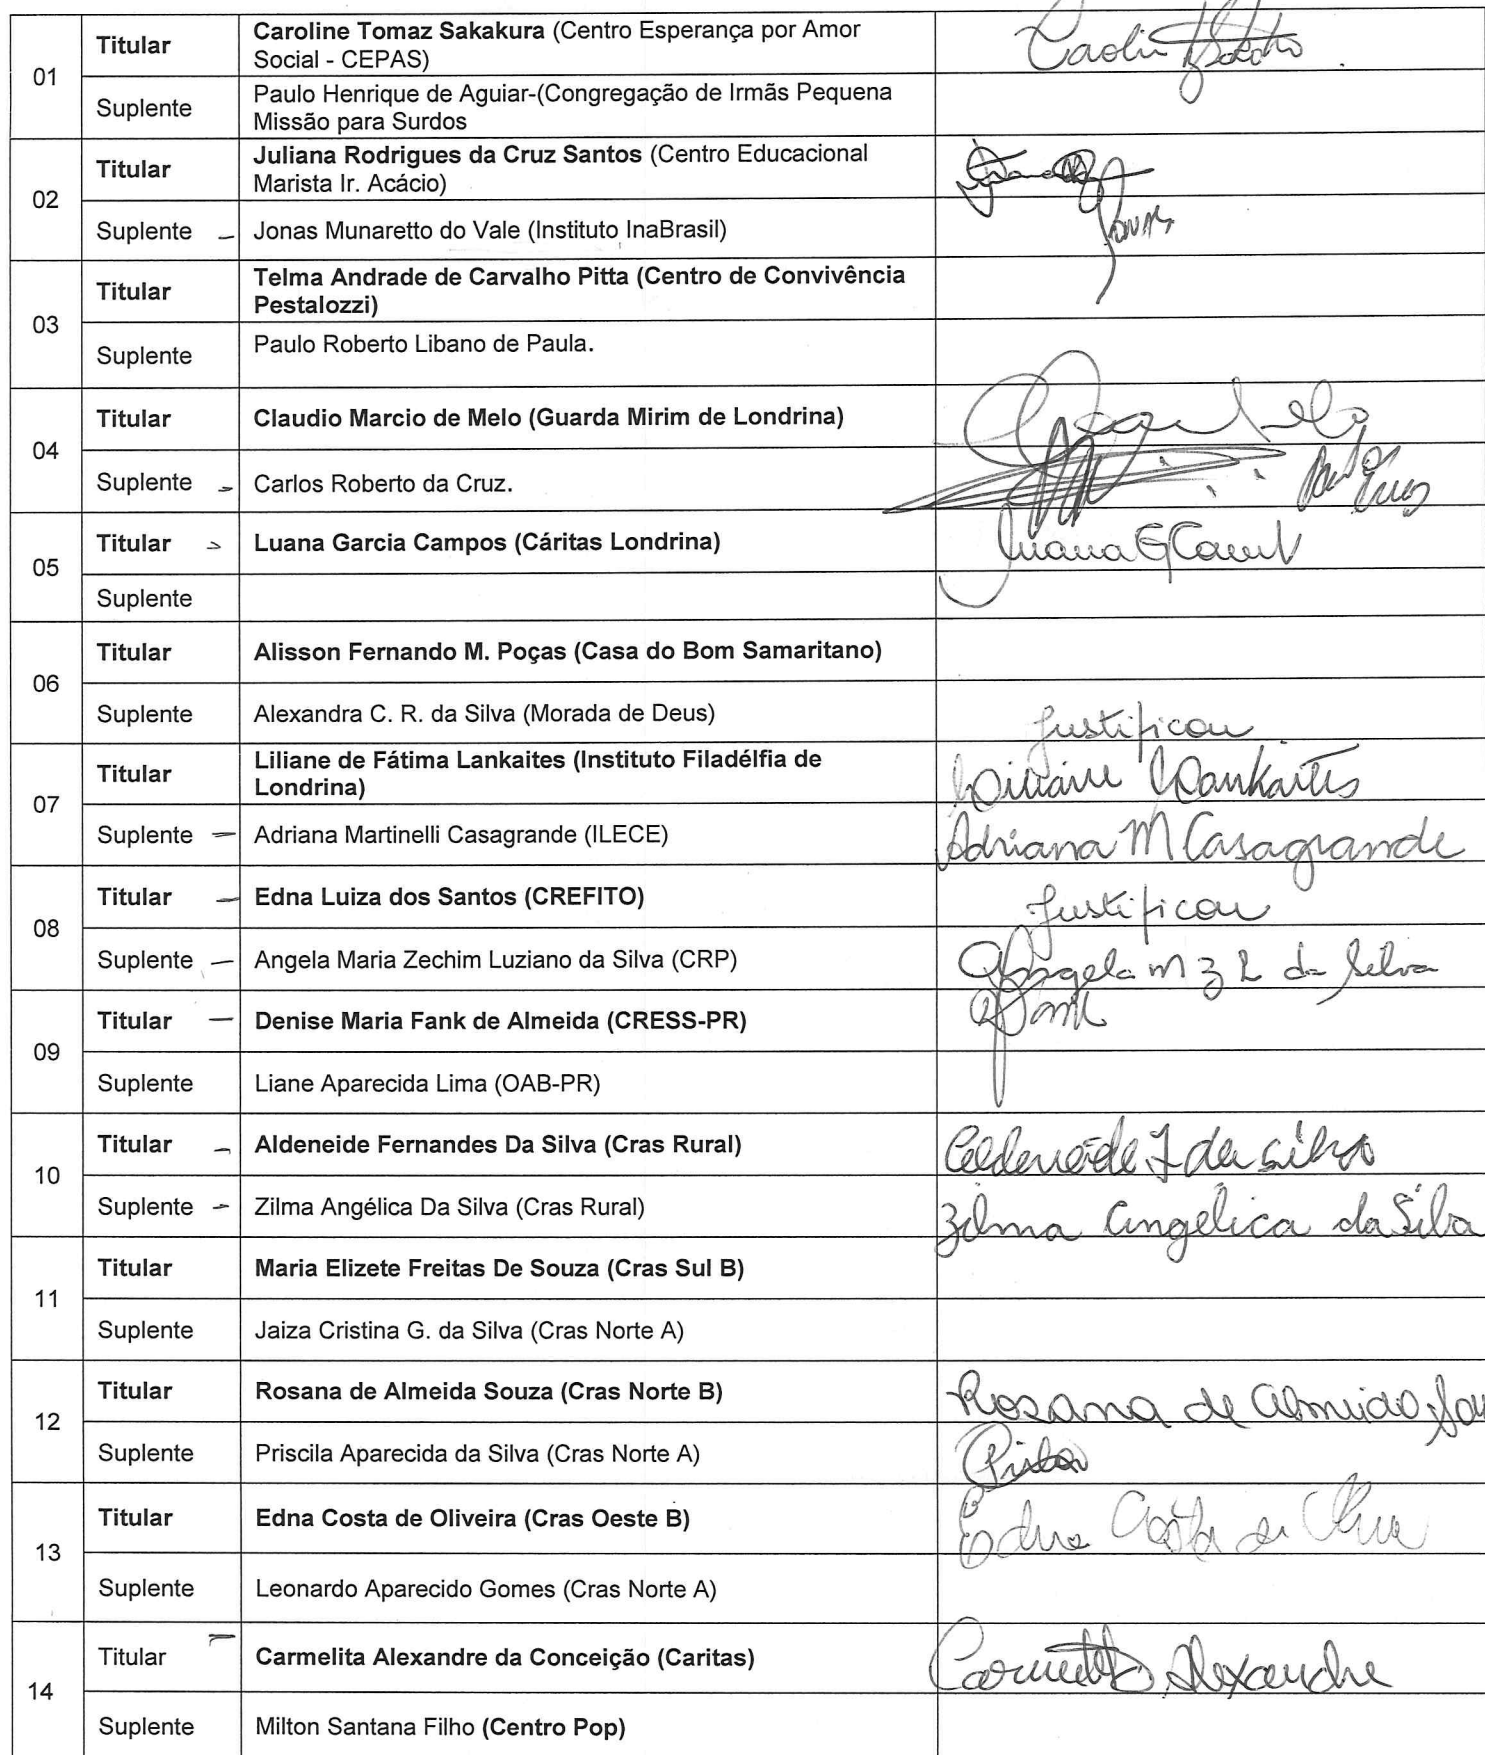 01
Titular
Caroline Tomaz Sakakura (Centro Esperança por Amor
Social - CEPAS)
Suplente
Paulo Henrique de Aguiar-(Congregação de Irmãs Pequena
Missão para Surdos
02
Titular
Juliana Rodrigues da Cruz Santos (Centro Educacional
Marista Ir. Acácio)
Suplente
Jonas Munaretto do Vale (Instituto InaBrasil)
03
Titular
Telma Andrade de Carvalho Pitta (Centro de Convivência
Pestalozzi)
Suplente
Paulo Roberto Libano de Paula.
04
Titular
Claudio Marcio de Melo (Guarda Mirim de Londrina)
Suplente
Carlos Roberto da Cruz.
05
Titular
Luana Garcia Campos (Cáritas Londrina)
Suplente
06
Titular
Alisson Fernando M. Poças (Casa do Bom Samaritano)
Suplente
Alexandra C. R. da Silva (Morada de Deus)
Justificou
07
Titular
Liliane de Fátima Lankaites (Instituto Filadélfia de
Londrina)
Liliane Lankaites
Suplente
Adriana Martinelli Casagrande (ILECE)
Adriana M Casagrande
08
Titular
Edna Luiza dos Santos (CREFITO)
Justificou
Suplente
Angela Maria Zechim Luziano da Silva (CRP)
Angela M Z L da Silva
09
Titular
Denise Maria Fank de Almeida (CRESS-PR)
Suplente
Liane Aparecida Lima (OAB-PR)
10
Titular
Aldeneide Fernandes Da Silva (Cras Rural)
Aldeneide F da Silva
Suplente
Zilma Angélica Da Silva (Cras Rural)
Zilma Angélica da Silva
11
Titular
Maria Elizete Freitas De Souza (Cras Sul B)
Suplente
Jaiza Cristina G. da Silva (Cras Norte A)
12
Titular
Rosana de Almeida Souza (Cras Norte B)
Rosana de Almeida Sou
Suplente
Priscila Aparecida da Silva (Cras Norte A)
13
Titular
Edna Costa de Oliveira (Cras Oeste B)
Edna Costa de
Suplente
Leonardo Aparecido Gomes (Cras Norte A)
14
Titular
Carmelita Alexandre da Conceição (Caritas)
Carmelita Alexandre
Suplente
Milton Santana Filho (Centro Pop)